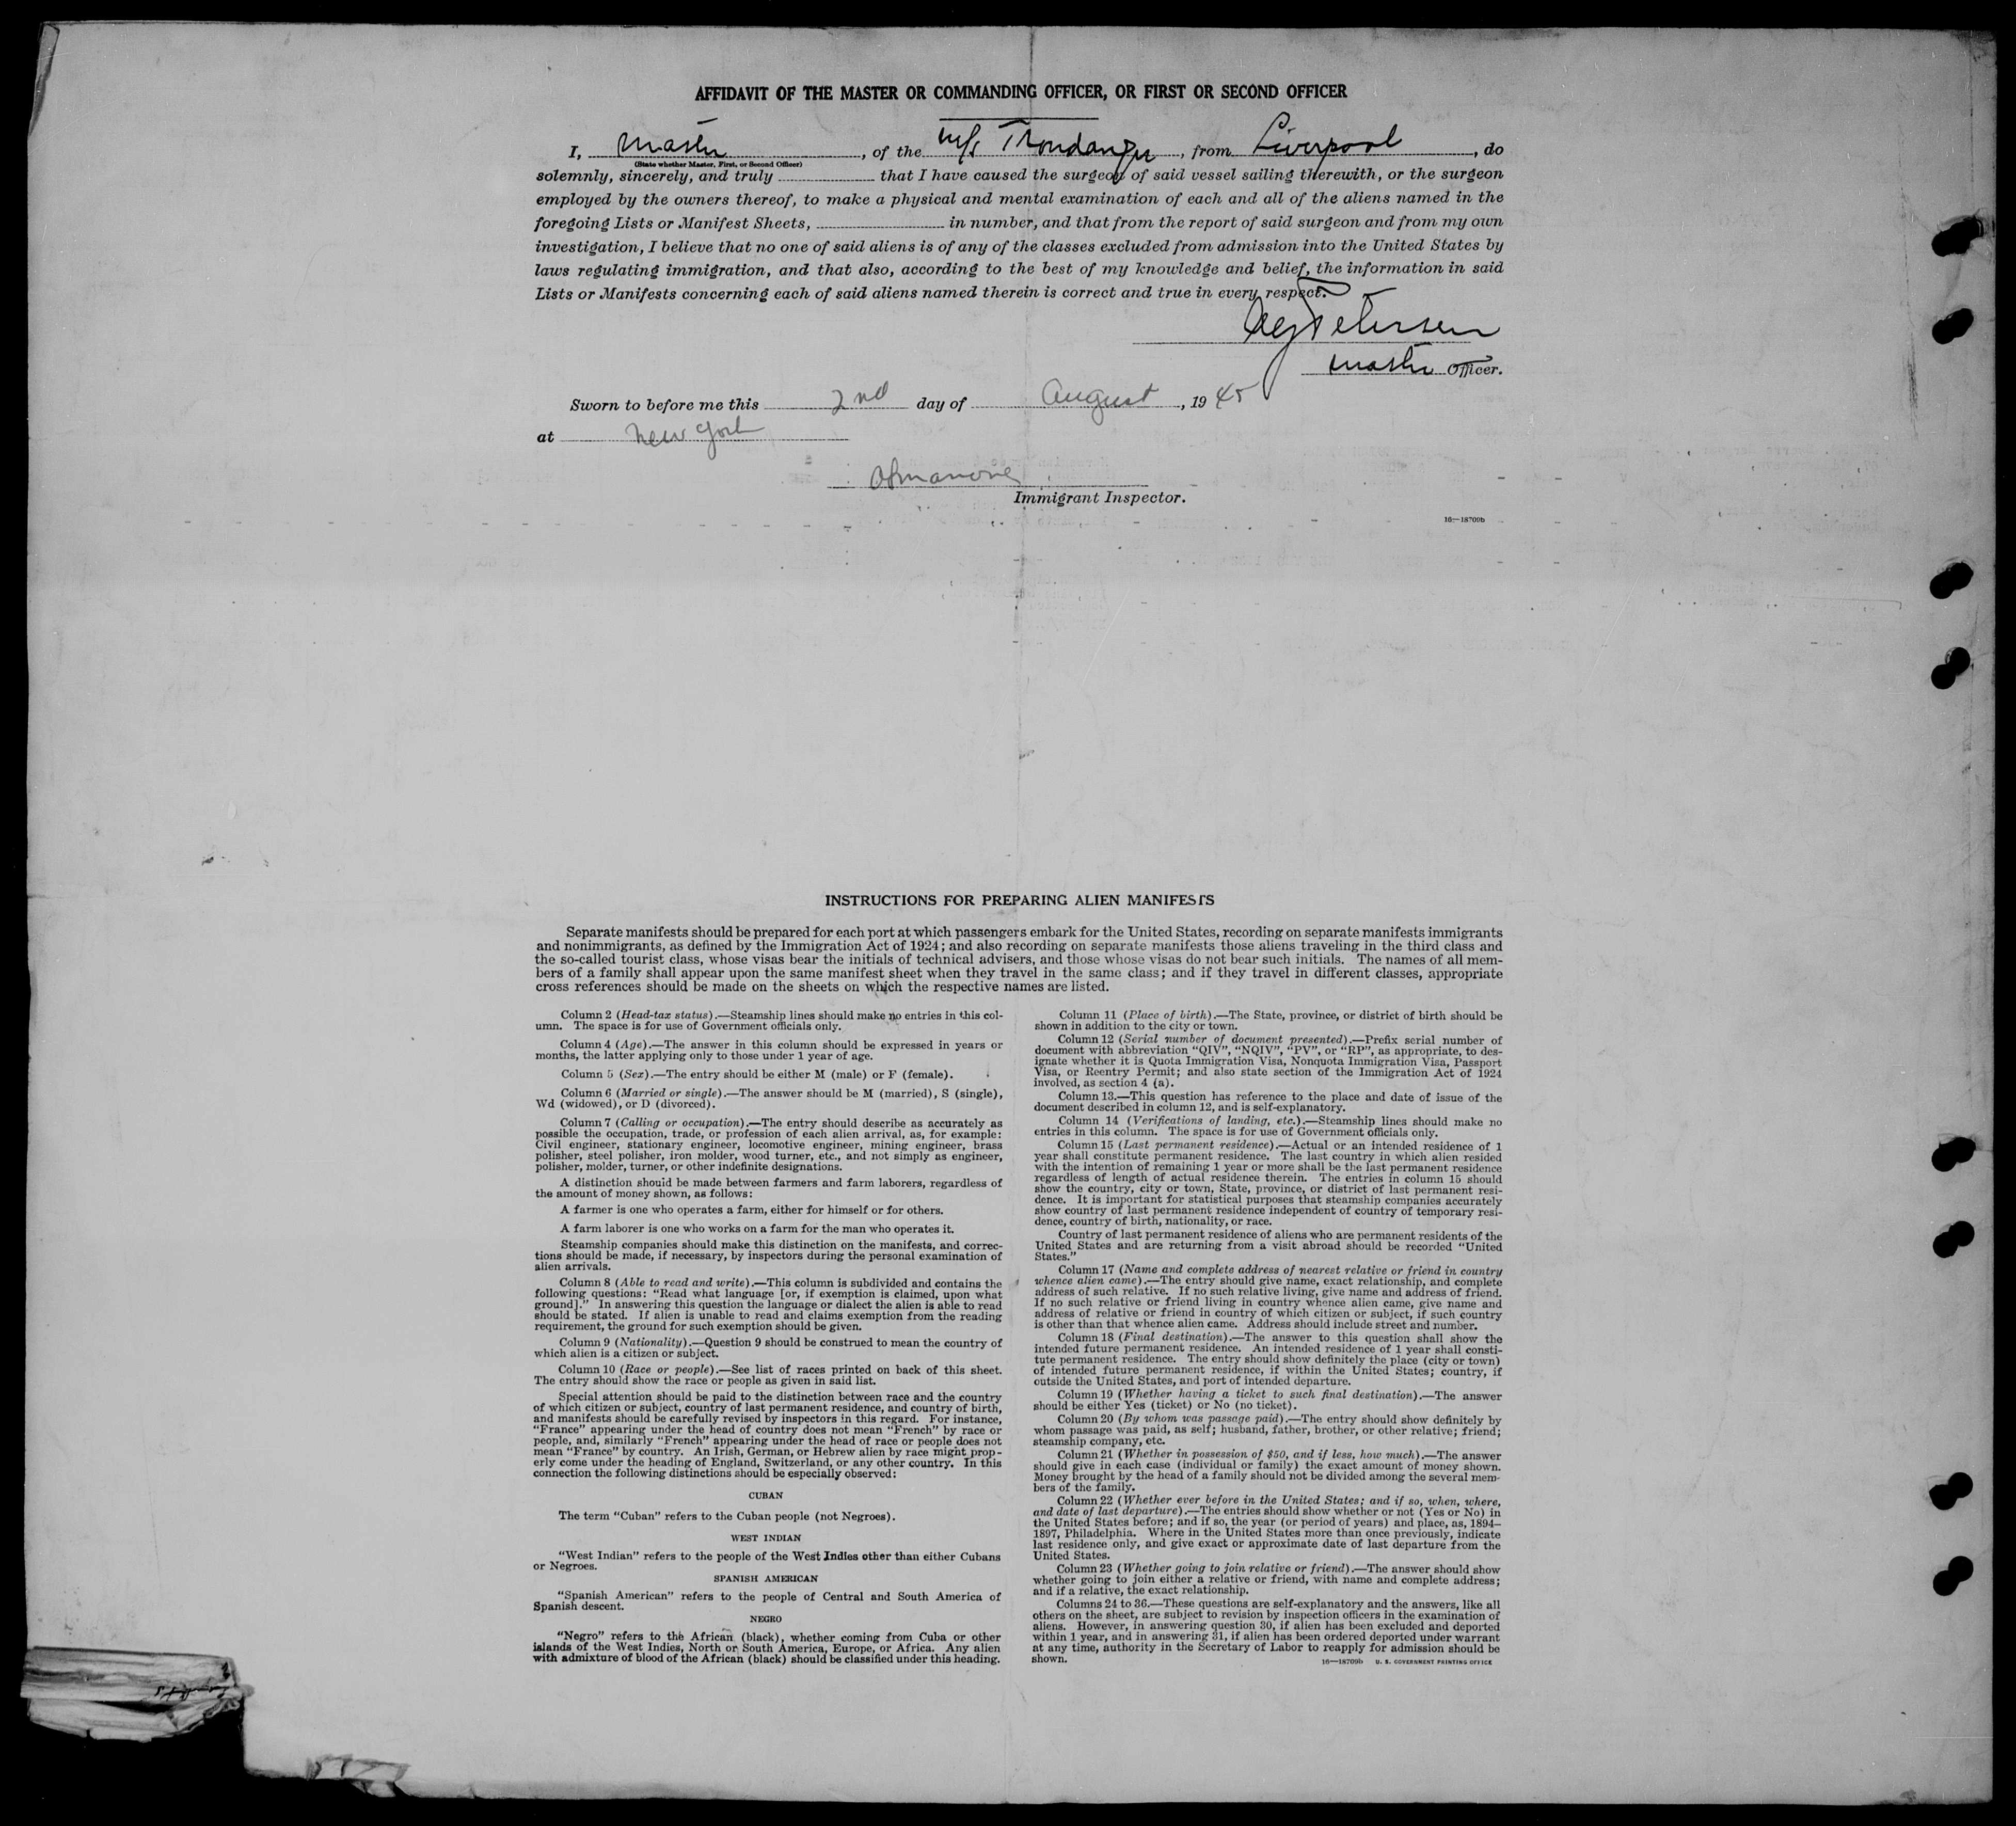 AFFIDAVIT OF THE MASTER OR COMMANDING OFFICER, OR FIRST OR SECOND OFFICER
I, Master, of the M/S Trondanger, from Liverpool, do
(State whether Master, First, or Second Officer)
solemnly, sincerely, and truly that I have caused the surgeon of said vessel sailing therewith, or the surgeon
employed by the owners thereof, to make a physical and mental examination of each and all of the aliens named in the
foregoing Lists or Manifest Sheets, in number, and that from the report of said surgeon and from my own
investigation, I believe that no one of said aliens is of any of the classes excluded from admission into the United States by
laws regulating immigration, and that also, according to the best of my knowledge and belief, the information in said
Lists or Manifests concerning each of said aliens named therein is correct and true in every respect.
Petersen
Master Officer.
Sworn to before me this 2nd day of August, 1945
at New York
Immigrant Inspector.
16—18709b
INSTRUCTIONS FOR PREPARING ALIEN MANIFESTS
Separate manifests should be prepared for each port at which passengers embark for the United States, recording on separate manifests immigrants
and nonimmigrants, as defined by the Immigration Act of 1924; and also recording on separate manifests those aliens traveling in the third class and
the so-called tourist class, whose visas bear the initials of technical advisers, and those whose visas do not bear such initials. The names of all mem-
bers of a family shall appear upon the same manifest sheet when they travel in the same class; and if they travel in different classes, appropriate
cross references should be made on the sheets on which the respective names are listed.
Column 2 (Head-tax status).—Steamship lines should make no entries in this col-
umn. The space is for use of Government officials only.
Column 4 (Age).—The answer in this column should be expressed in years or
months, the latter applying only to those under 1 year of age.
Column 5 (Sex).—The entry should be either M (male) or F (female).
Column 6 (Married or single).—The answer should be M (married), S (single),
Wd (widowed), or D (divorced).
Column 7 (Calling or occupation).—The entry should describe as accurately as
possible the occupation, trade, or profession of each alien arrival, as, for example:
Civil engineer, stationary engineer, locomotive engineer, mining engineer, brass
polisher, steel polisher, iron molder, wood turner, etc., and not simply as engineer,
polisher, molder, turner, or other indefinite designations.
A distinction should be made between farmers and farm laborers, regardless of
the amount of money shown, as follows:
A farmer is one who operates a farm, either for himself or for others.
A farm laborer is one who works on a farm for the man who operates it.
Steamship companies should make this distinction on the manifests, and correc-
tions should be made, if necessary, by inspectors during the personal examination of
alien arrivals.
Column 8 (Able to read and write).—This column is subdivided and contains the
following questions: "Read what language [or, if exemption is claimed, upon what
ground]." In answering this question the language or dialect the alien is able to read
should be stated. If alien is unable to read and claims exemption from the reading
requirement, the ground for such exemption should be given.
Column 9 (Nationality).—Question 9 should be construed to mean the country of
which alien is a citizen or subject.
Column 10 (Race or people).—See list of races printed on back of this sheet.
The entry should show the race or people as given in said list.
Special attention should be paid to the distinction between race and the country
of which citizen or subject, country of last permanent residence, and country of birth,
and manifests should be carefully revised by inspectors in this regard. For instance,
"France" appearing under the head of country does not mean "French" by race or
people, and, similarly "French" appearing under the head of race or people does not
mean "France" by country. An Irish, German, or Hebrew alien by race might prop-
erly come under the heading of England, Switzerland, or any other country. In this
connection the following distinctions should be especially observed:
CUBAN
The term "Cuban" refers to the Cuban people (not Negroes).
WEST INDIAN
"West Indian" refers to the people of the West Indies other than either Cubans
or Negroes.
SPANISH AMERICAN
"Spanish American" refers to the people of Central and South America of
Spanish descent.
NEGRO
"Negro" refers to the African (black), whether coming from Cuba or other
islands of the West Indies, North or South America, Europe, or Africa. Any alien
with admixture of blood of the African (black) should be classified under this heading.
Column 11 (Place of birth).—The State, province, or district of birth should be
shown in addition to the city or town.
Column 12 (Serial number of document presented).—Prefix serial number of
document with abbreviation "QIV", "NQIV", "PV", or "RP", as appropriate, to des-
ignate whether it is Quota Immigration Visa, Nonquota Immigration Visa, Passport
Visa, or Reentry Permit; and also state section of the Immigration Act of 1924
involved, as section 4 (a).
Column 13.—This question has reference to the place and date of issue of the
document described in column 12, and is self-explanatory.
Column 14 (Verifications of landing, etc.).—Steamship lines should make no
entries in this column. The space is for use of Government officials only.
Column 15 (Last permanent residence).—Actual or an intended residence of 1
year shall constitute permanent residence. The last country in which alien resided
with the intention of remaining 1 year or more shall be the last permanent residence
regardless of length of actual residence therein. The entries in column 15 should
show the country, city or town, State, province, or district of last permanent resi-
dence. It is important for statistical purposes that steamship companies accurately
show country of last permanent residence independent of country of temporary resi-
dence, country of birth, nationality, or race.
Country of last permanent residence of aliens who are permanent residents of the
United States and are returning from a visit abroad should be recorded "United
States."
Column 17 (Name and complete address of nearest relative or friend in country
whence alien came).—The entry should give name, exact relationship, and complete
address of such relative. If no such relative living, give name and address of friend.
If no such relative or friend living in country whence alien came, give name and
address of relative or friend in country of which citizen or subject, if such country
is other than that whence alien came. Address should include street and number.
Column 18 (Final destination).—The answer to this question shall show the
intended future permanent residence. An intended residence of 1 year shall consti-
tute permanent residence. The entry should show definitely the place (city or town)
of intended future permanent residence, if within the United States; country, if
outside the United States, and port of intended departure.
Column 19 (Whether having a ticket to such final destination).—The answer
should be either Yes (ticket) or No (no ticket).
Column 20 (By whom was passage paid).—The entry should show definitely by
whom passage was paid, as self; husband, father, brother, or other relative; friend;
steamship company, etc.
Column 21 (Whether in possession of $50, and if less, how much).—The answer
should give in each case (individual or family) the exact amount of money shown.
Money brought by the head of a family should not be divided among the several mem-
bers of the family.
Column 22 (Whether ever before in the United States; and if so, when, where,
and date of last departure).—The entries should show whether or not (Yes or No) in
the United States before; and if so, the year (or period of years) and place, as, 1894–
1897, Philadelphia. Where in the United States more than once previously, indicate
last residence only, and give exact or approximate date of last departure from the
United States.
Column 23 (Whether going to join relative or friend).—The answer should show
whether going to join either a relative or friend, with name and complete address;
and if a relative, the exact relationship.
Columns 24 to 36.—These questions are self-explanatory and the answers, like all
others on the sheet, are subject to revision by inspection officers in the examination of
aliens. However, in answering question 30, if alien has been excluded and deported
within 1 year, and in answering 31, if alien has been ordered deported under warrant
at any time, authority in the Secretary of Labor to reapply for admission should be
shown.
16—18709b U. S. GOVERNMENT PRINTING OFFICE